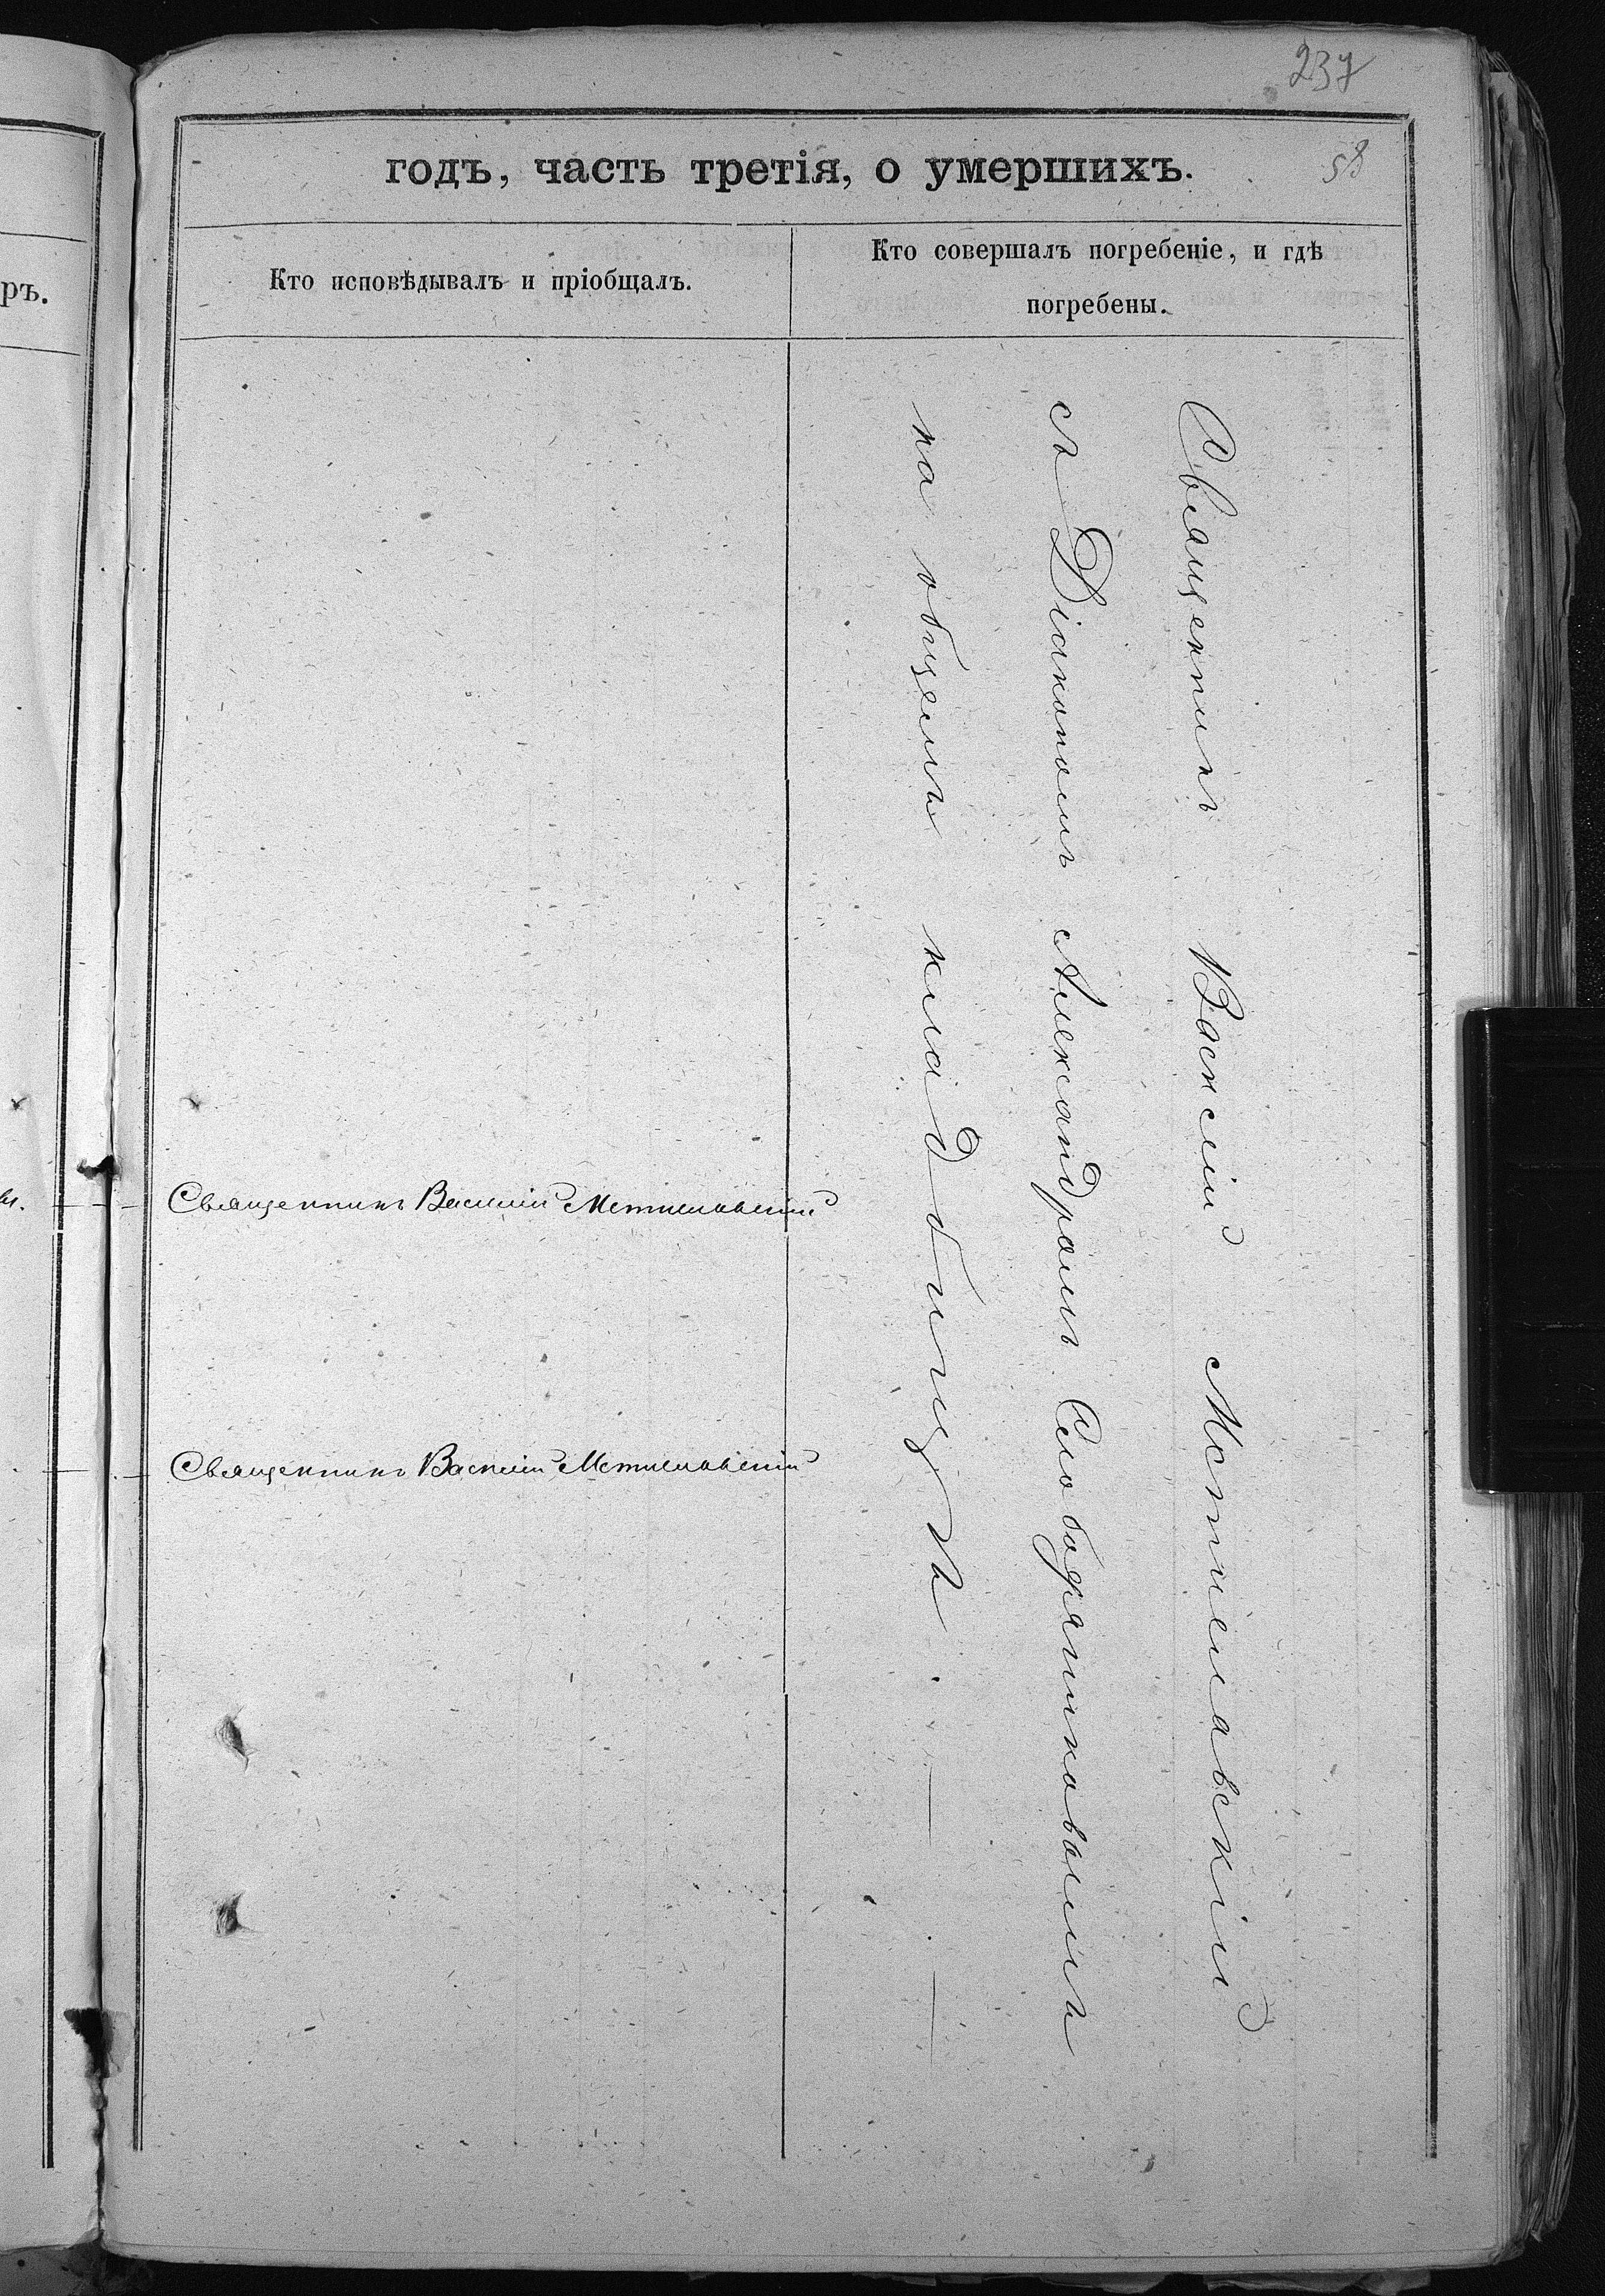 237
годъ, часть третія, о умершихъ.
58
Кто исповѣдывалъ и пріобщалъ.
Кто совершалъ погребеніе, и гдѣ
погребены.
ръ.
Священникъ Василій Мстиславскій
Священникъ Василій Мстиславскій
Священникъ Василій Мстиславскій
съ Діакономъ Александромъ Слободчиковымъ
на общемъ кладбищѣ.